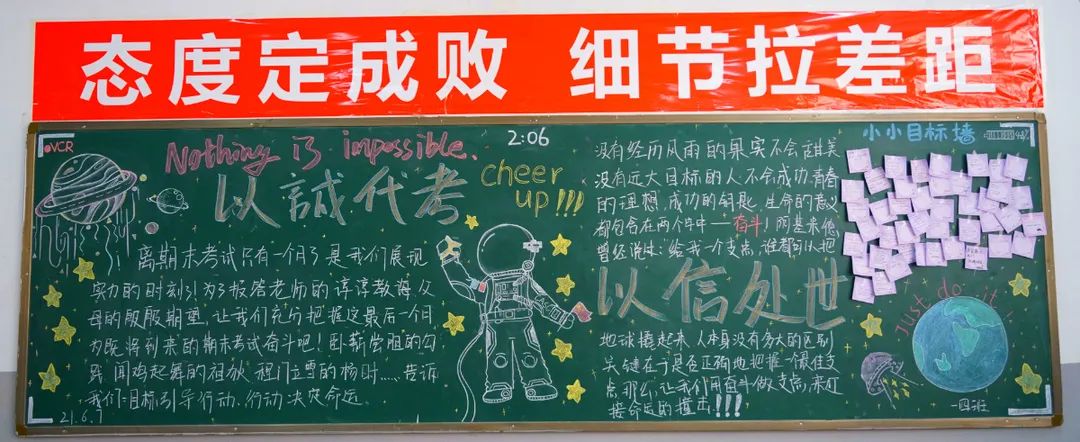 态度定成败 细节拉差距
VCR
Nothing is impossible.
2:06
小小目标墙
以誠代考
cheer
up!!!
离期末考试只有一个月了是我们展现
实力的时刻!为了报答老师的谆谆教诲,父
母的殷殷期望,让我们充分把握这最后一个月
为既将到来的期末考试奋斗吧!卧薪尝胆的勾
践,闻鸡起舞的祖狄,程门立雪的杨时……告诉
我们:目标引导行动,行动决定命运。
21.6.7
没有经历风雨的果实不会甜美
没有远大目标的人不会成功.青春
的理想,成功的钥匙,生命的意义
都包含在两个字中——奋斗!阿基米德
曾经说过:给我一个支点,谁都可以把
以信处世
地球撬起来,人本身没有多大的区别
关键在于是否正确地把握一个最佳支
点,那么,让我们用奋斗做支点,来迎
接命运的撞击!!!
Just do it!
一四班